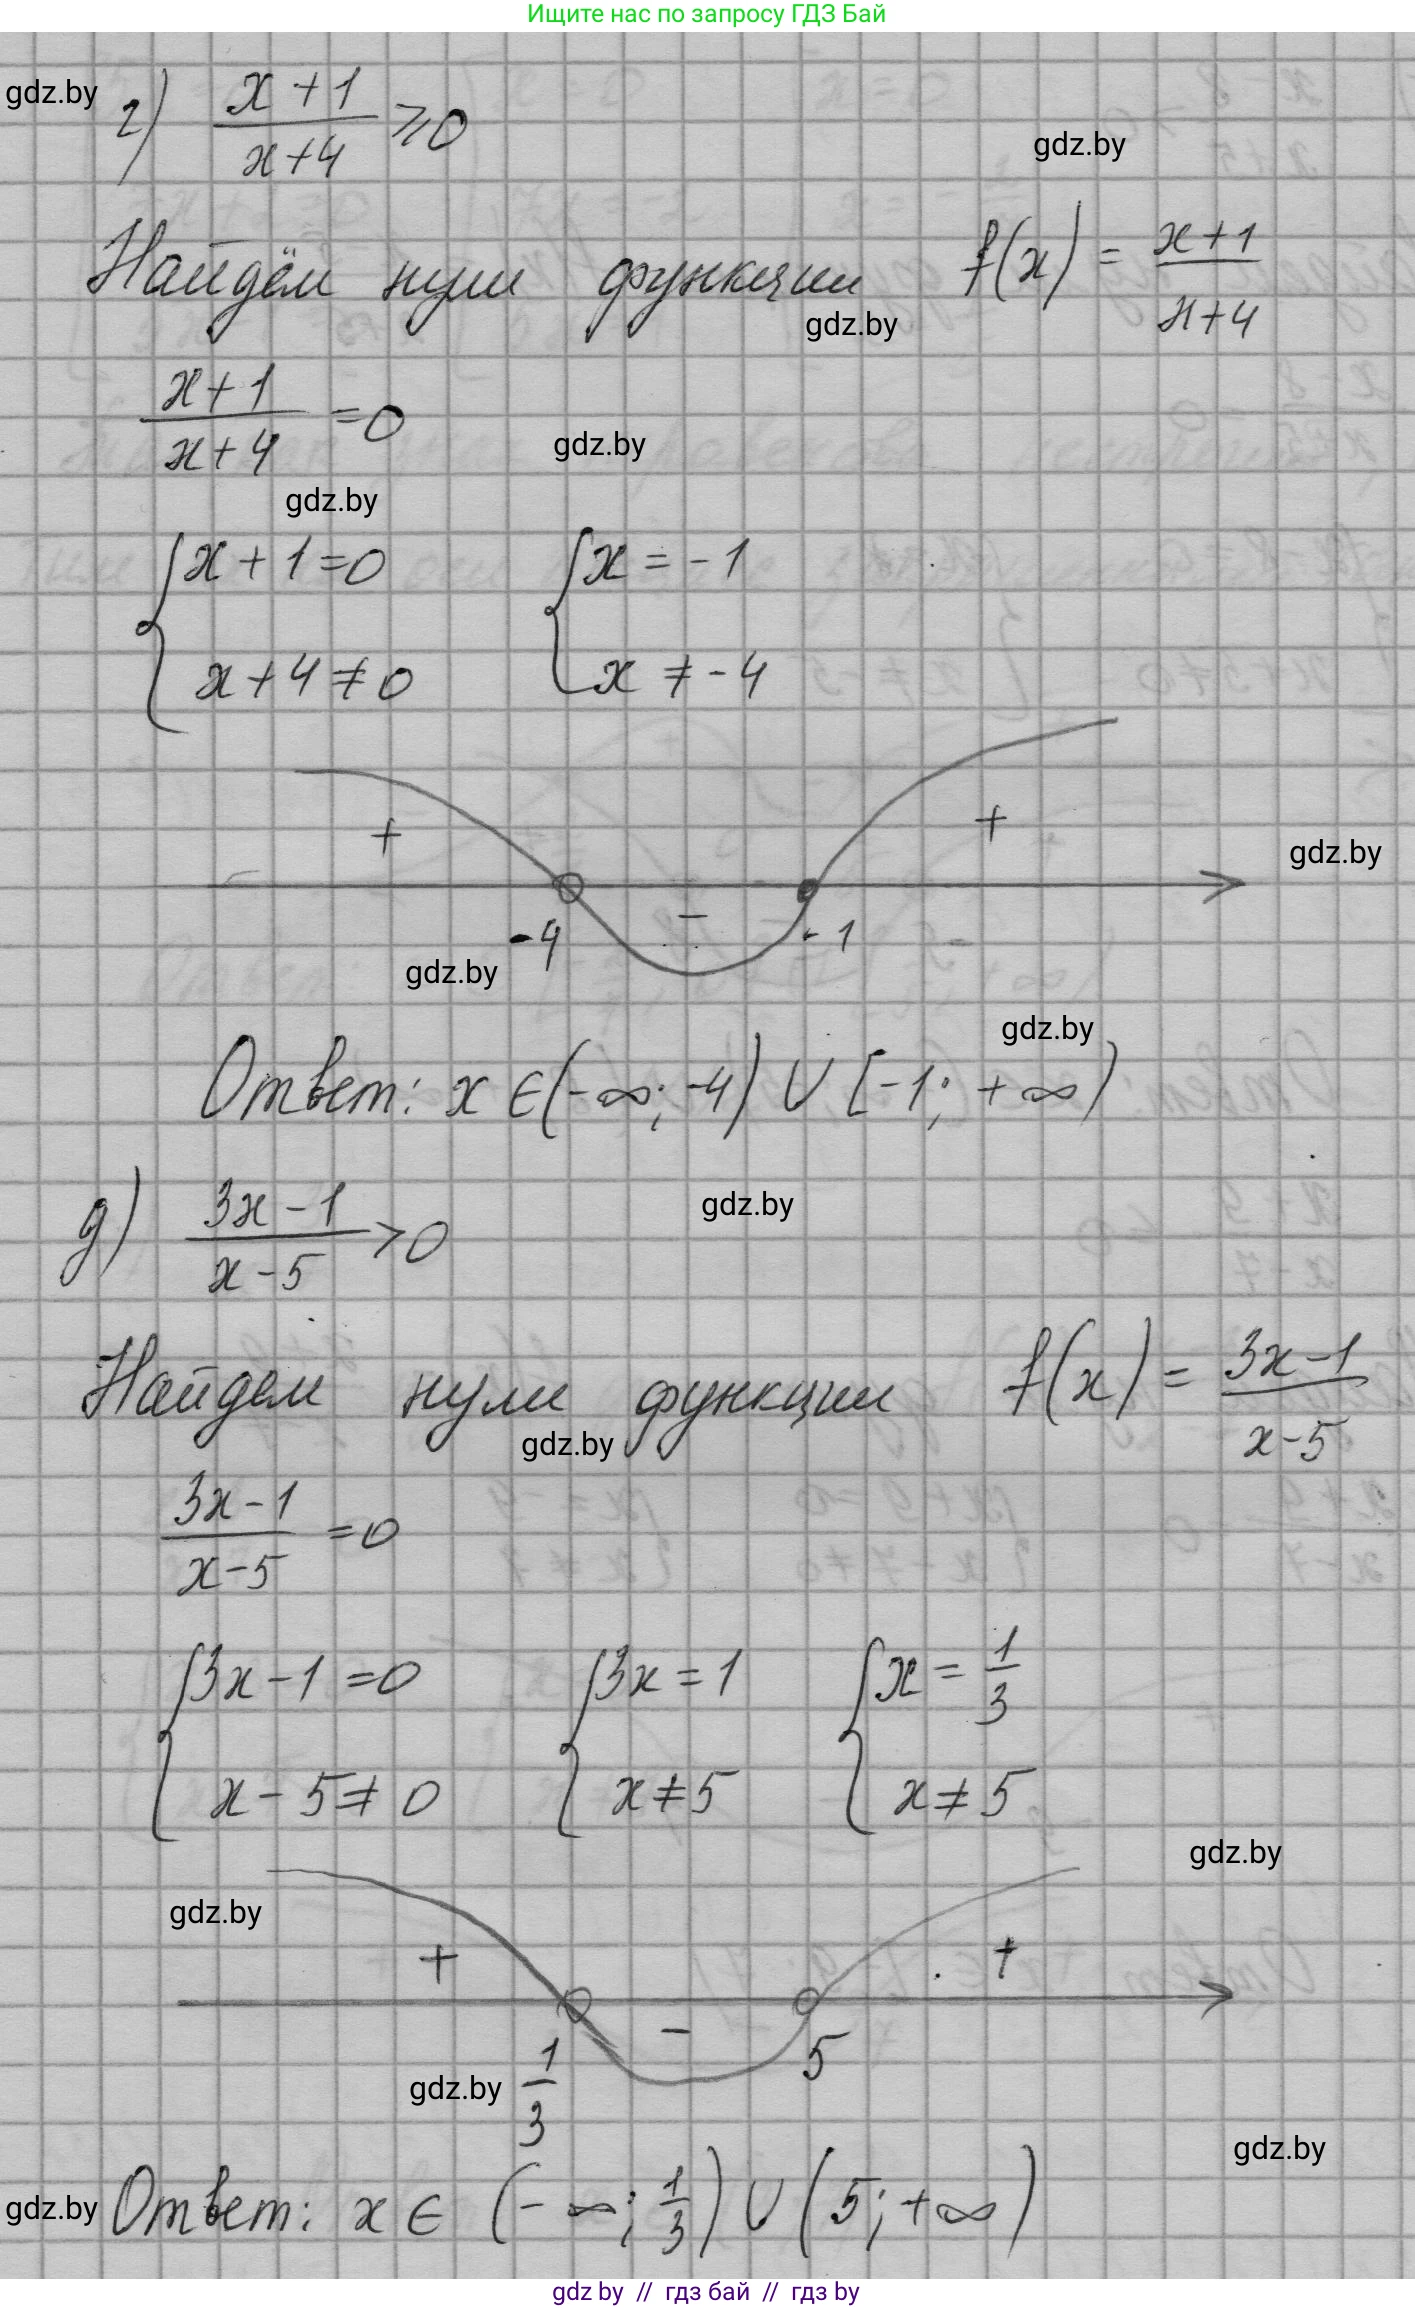 Ищите нас по запросу ГДЗ Бай
gdz.by
г) (x+1)/(x+4) ≥ 0
gdz.by
Найдём нули функции f(x) = (x+1)/(x+4)
gdz.by
(x+1)/(x+4) = 0
gdz.by
gdz.by
{ x+1=0 { x=-1
x+4≠0 x≠-4
+ +
gdz.by
-4 - -1
gdz.by
gdz.by
Ответ: x∈(-∞; -4) ∪ [-1; +∞)
gdz.by
д) (3x-1)/(x-5) > 0
Найдем нули функции f(x) = (3x-1)/(x-5)
gdz.by
(3x-1)/(x-5) = 0
{ 3x-1=0 { 3x=1 { x=1/3
x-5≠0 x≠5 x≠5
gdz.by
gdz.by
+ +
-
1/3 5
gdz.by
gdz.by
gdz.by
Ответ: x∈(-∞; 1/3) ∪ (5; +∞)
gdz by // гдз бай // гдз by